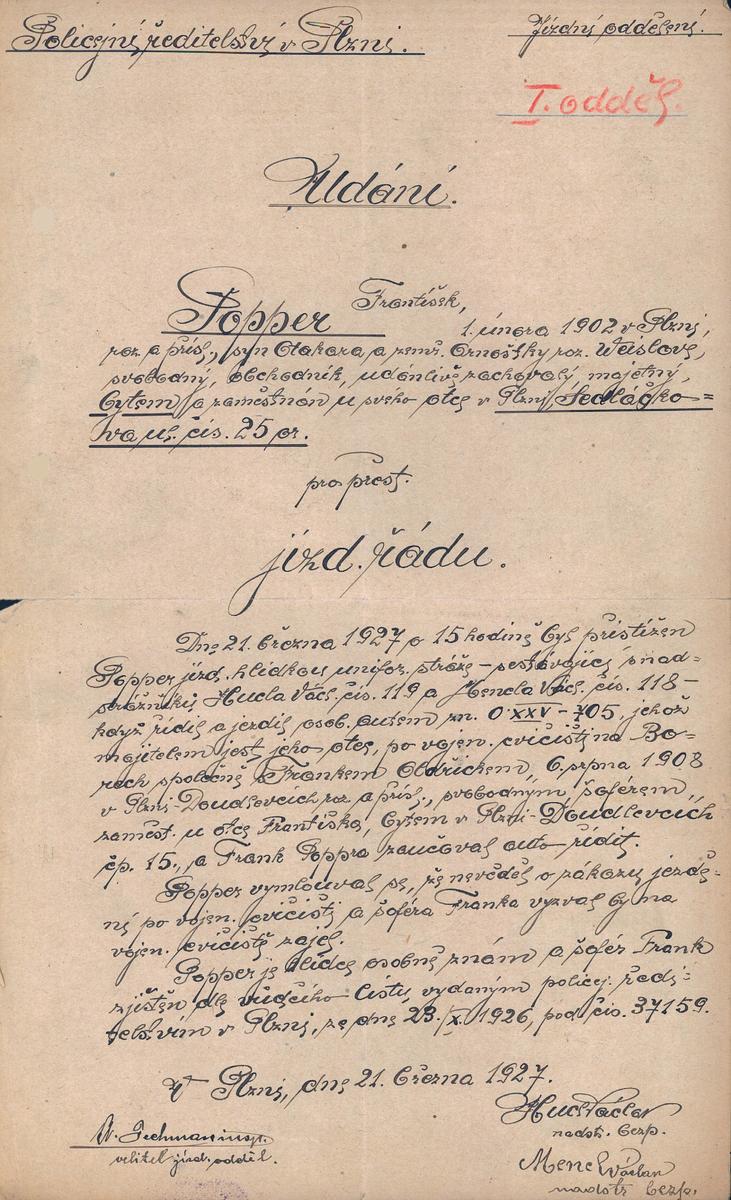 Policejní ředitelství v Plzni.
Jízdní oddělení.
I. odděl.
Udání.
Popper František,
1. února 1902 v Plzni,
roz. a přísl., syn Otakara a zemř. Ernoštky roz. Weislové,
svobodný, obchodník, udánlivě zachovalý, majetný,
bytem a zaměstnán u svého otce v Plzni, Sedláčko=
va ul. čís. 25 or.
pro přest.
jízd. řádu.
Dne 21. března 1927 o 15 hodině byl přistižen
Popper jízd. hlídkou unifor. stráže – sestávající s nad=
strážníků Hucla Václ. čís. 119 a Mencla Václ. čís. 118 –
když řídil a jezdil osob. autem zn. O XXV – 705, jehož
majitelem jest jeho otec, po vojen. cvičišti na Bo=
rech společně s Frankem Oldřichem, 6. srpna 1908
v Plzni-Doudlevcích roz. a přísl., svobodným, šoférem,
zaměst. u otce Františka, bytem v Plzni-Doudlevcích
čp. 15., a Frank Poppra zaučoval auto řídit.
Popper vymlouval se, že nevěděl o zákazu jezdě=
ní po vojen. cvičišti a šoféra Franka vyzval by na
vojen. cvičiště zajel.
Popper je hlídce osobně znám a šofér Frank
zjištěn dle vůdčího listu, vydaným policej. ředi=
telstvím v Plzni, ze dne 23. /X. 1926, pod čís. 37159.
V Plzni, dne 21. března 1927.
Hucl Václav
nadstr. bezp.
insp.
velitel jízd. odděl.
Mencl Václav
nadstr. bezp.